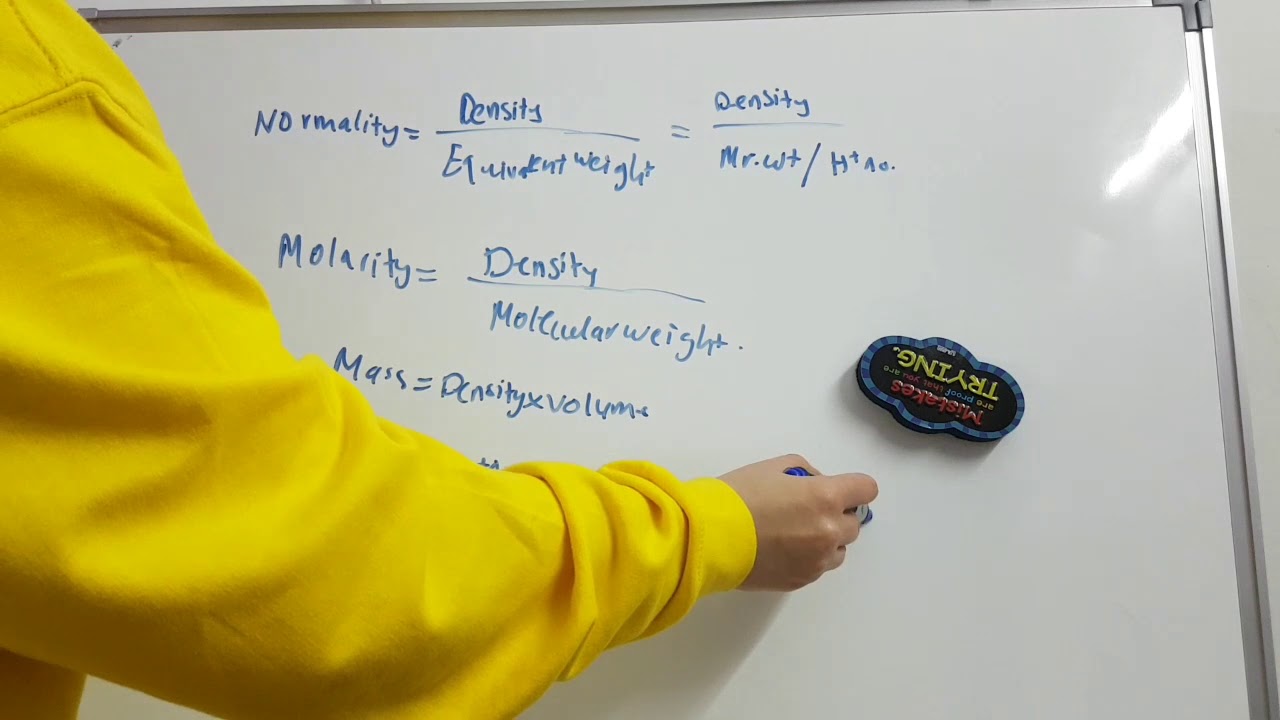 Normality = Density / Equivalent weight = Density / Mr.wt / H+ no.
Molarity = Density / Molecular weight.
Mass = Density x volume
Mistakes
are proof that you are
TRYING.